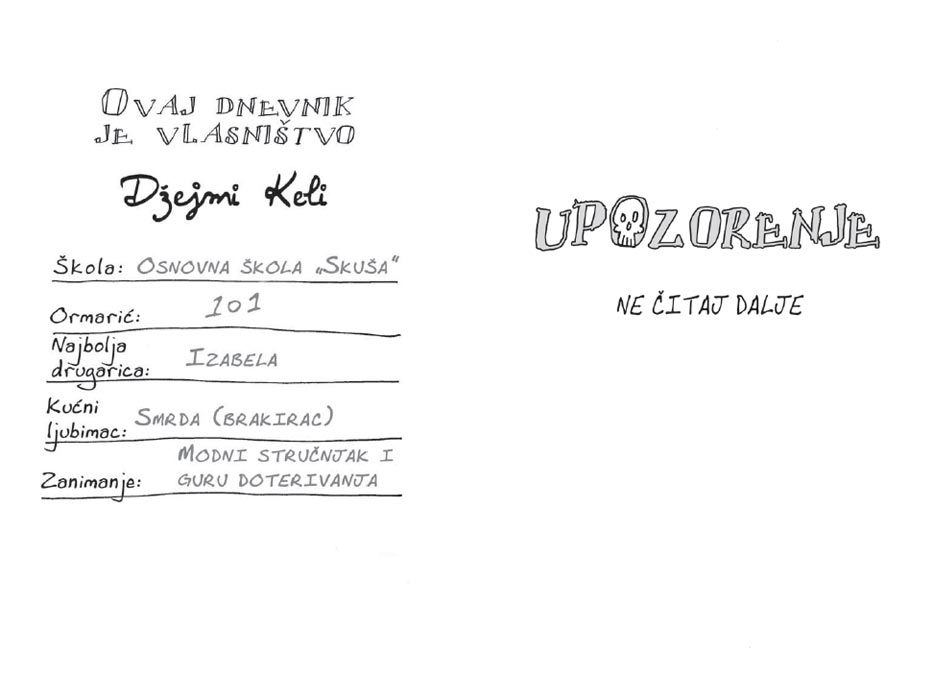 OVAJ DNEVNIK
JE VLASNIŠTVO
Džejmi Keli
Škola: OSNOVNA ŠKOLA „SKUŠA“
Ormarić: 101
Najbolja
drugarica: IZABELA
Kućni
ljubimac: SMRDA (BRAKIRAC)
Zanimanje: MODNI STRUČNJAK I
GURU DOTERIVANJA
UPOZORENJE
NE ČITAJ DALJE